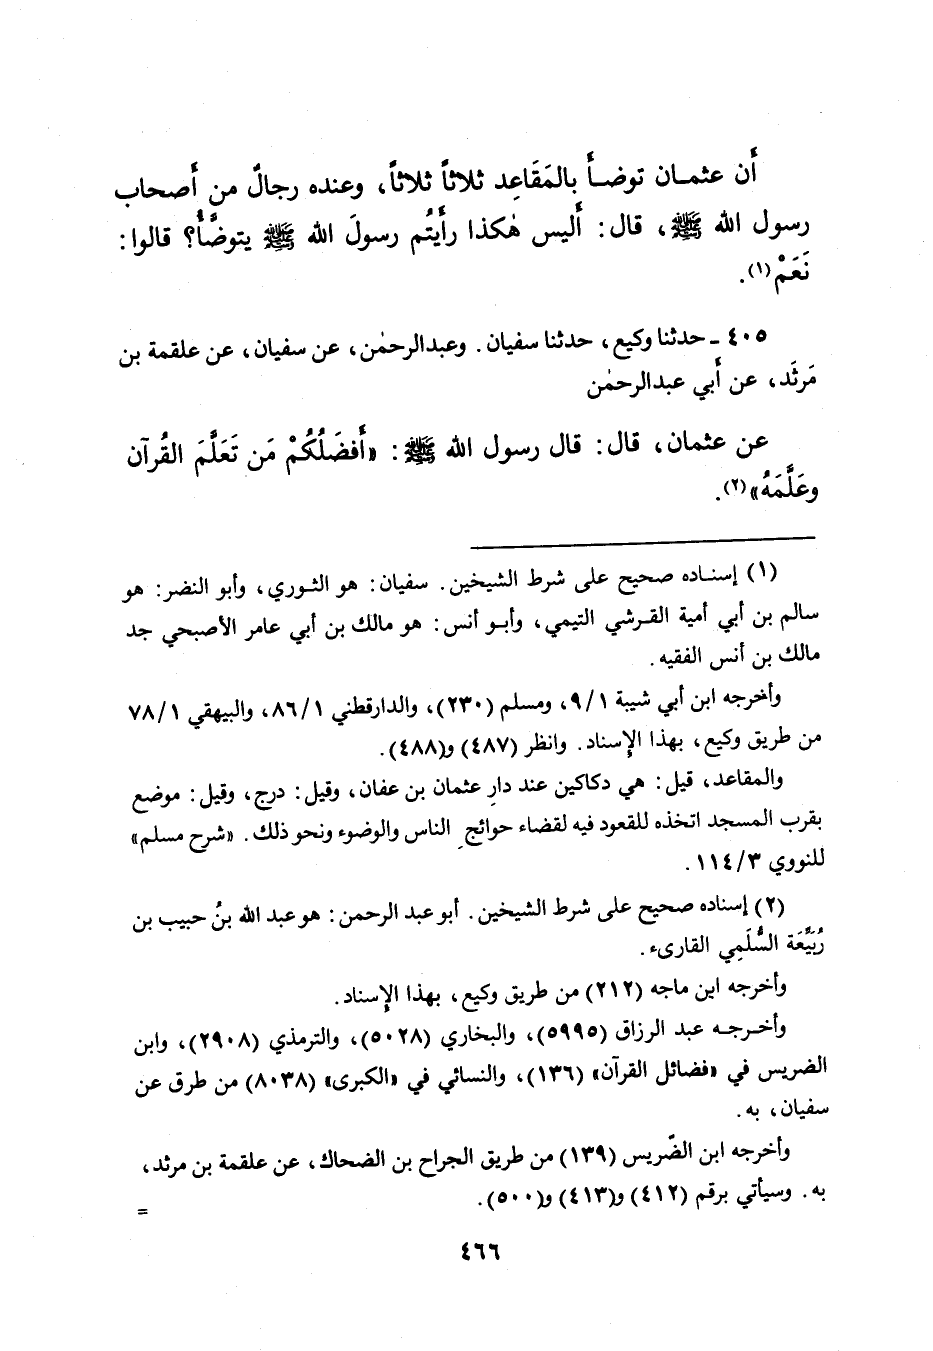 أَن عثمـان توضـأَ بالمَقَاعِد ثلاثاً ثلاثاً، وعنده رجالٌ من أَصحاب
رسول الله ﷺ، قال: أَليس هٰكذا رأَيتُم رسولَ الله ﷺ يتوضَّأُ؟ قالوا:
نَعَمْ(١).
٤٠٥ ـ حدثنا وكيع، حدثنا سفيان. وعبدالرحمٰن، عن سفيان، عن علقمة بن
مَرثَد، عن أَبي عبدالرحمٰن
عن عثمان، قال: قال رسول الله ﷺ: «أَفضَلُكُمْ مَن تَعَلَّمَ القُرآن
وعَلَّمَهُ»(٢).
(١) إسنـاده صحيح على شرط الشيخين. سفيان: هو الثـوري، وأبو النضر: هو
سالم بن أبي أمية القـرشي التيمي، وأبـو أنس: هو مالك بن أبي عامر الأصبحي جد
مالك بن أنس الفقيه.
وأخرجه ابن أبي شيبة ٩/١، ومسلم (٢٣٠)، والدارقطني ٨٦/١، والبيهقي ٧٨/١
من طريق وكيع، بهذا الإسناد. وانظر (٤٨٧) و(٤٨٨).
والمقاعد، قيل: هي دكاكين عند دارِ عثمان بن عفان، وقيل: درج، وقيل: موضع
بقرب المسجد اتخذه للقعود فيه لقضاء حوائجِ الناس والوضوء ونحو ذلك. «شرح مسلم»
للنووي ١١٤/٣.
(٢) إسناده صحيح على شرط الشيخين. أبو عبد الرحمن: هو عبد الله بنُ حبيب بن
رُبَيِّعَة السُّلَمِي القارىء.
وأخرجه ابن ماجه (٢١٢) من طريق وكيع، بهذا الإسناد.
وأخـرجـه عبد الرزاق (٥٩٩٥)، والبخاري (٥٠٢٨)، والترمذي (٢٩٠٨)، وابن
الضريس في «فضائل القرآن» (١٣٦)، والنسائي في «الكبرى» (٨٠٣٨) من طرق عن
سفيان، به.
وأخرجه ابن الضّريس (١٣٩) من طريق الجراح بن الضحاك، عن علقمة بن مرثد،
به. وسيأتي برقم (٤١٢) و(٤١٣) و(٥٠٠).
=
٤٦٦